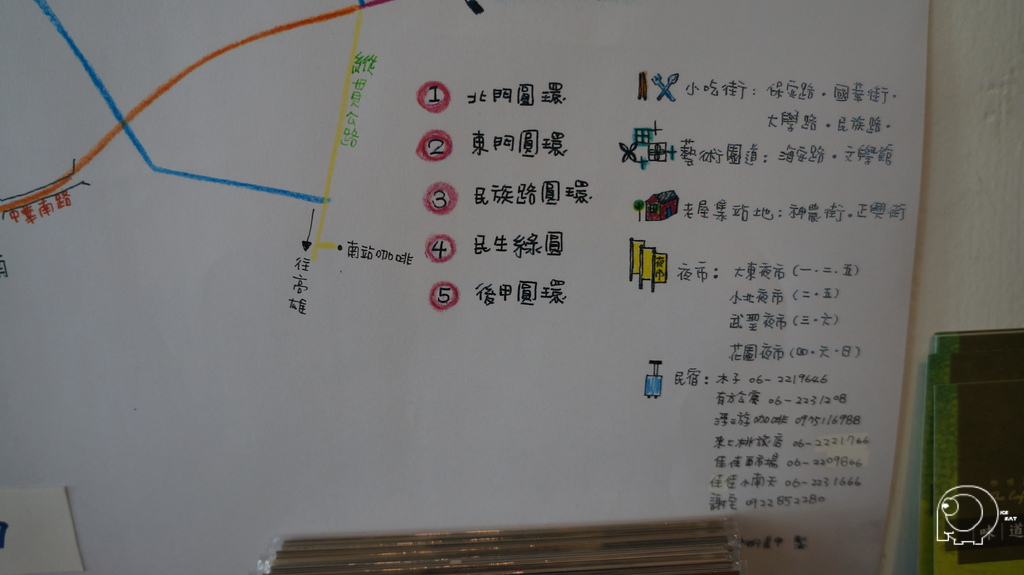 縱貫公路
中華南路
往高雄
南站咖啡
1 北門圓環
2 東門圓環
3 民族路圓環
4 民生綠圓
5 後甲圓環
小吃街：保安路．國華街．
大學路．民族路．
藝術園道：海安路．文學館
老屋集站地：神農街．正興街
夜市
夜市：大東夜市(一．二．五)
小北夜市(二．五)
武聖夜市(三．六)
花園夜市(四．六．日)
民宿：木子 06-2219646
有方公寓 06-2231208
咖啡 0975116988
06-2221766
佳佳西市場 06-2209866
佳佳小南天 06-2231666
謝宅 0922852280
ICE
EAT
味 道